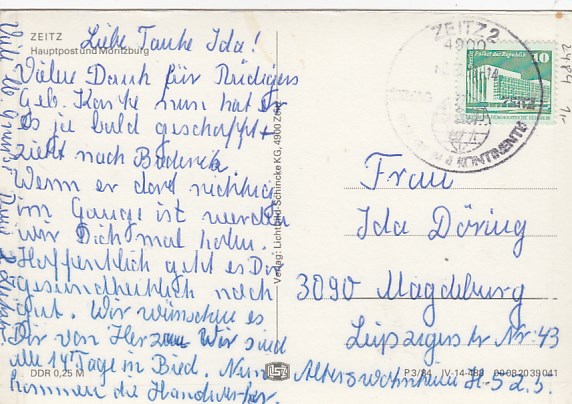 ZEITZ
Hauptpost und Moritzburg
Liebe Tante Ida!
Vielen Dank für Rüdigers
Geb. Karte nun hat er
es ja bald geschafft u.
zieht nach
Wenn er dort richtig
im Gange ist werden
wir Dich mal holen.
Hoffentlich geht es Dir
gesundheitlich noch
gut. Wir wünschen es
Dir von Herzen Wir sind
alle 14 Tage in Bied. Nun
kommen die Handwerker.
Viele lb. Grüße
DDR 0,25 M
Verlag: Lichtbild-Schincke KG, 4900 Zeitz
ZEITZ 2
4900
KONTINENTE
Palast der Republik
10
DDR
Frau
Ida Döring
3090 Magdeburg
Leipzigerstr Nr. 43
Alterswohnheim
P 3/84 IV-14-483 00 08 20 39 041
2484